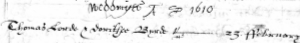 Weddinges A D 1610
Thomas Forde & Dorithye Byrde 25 February